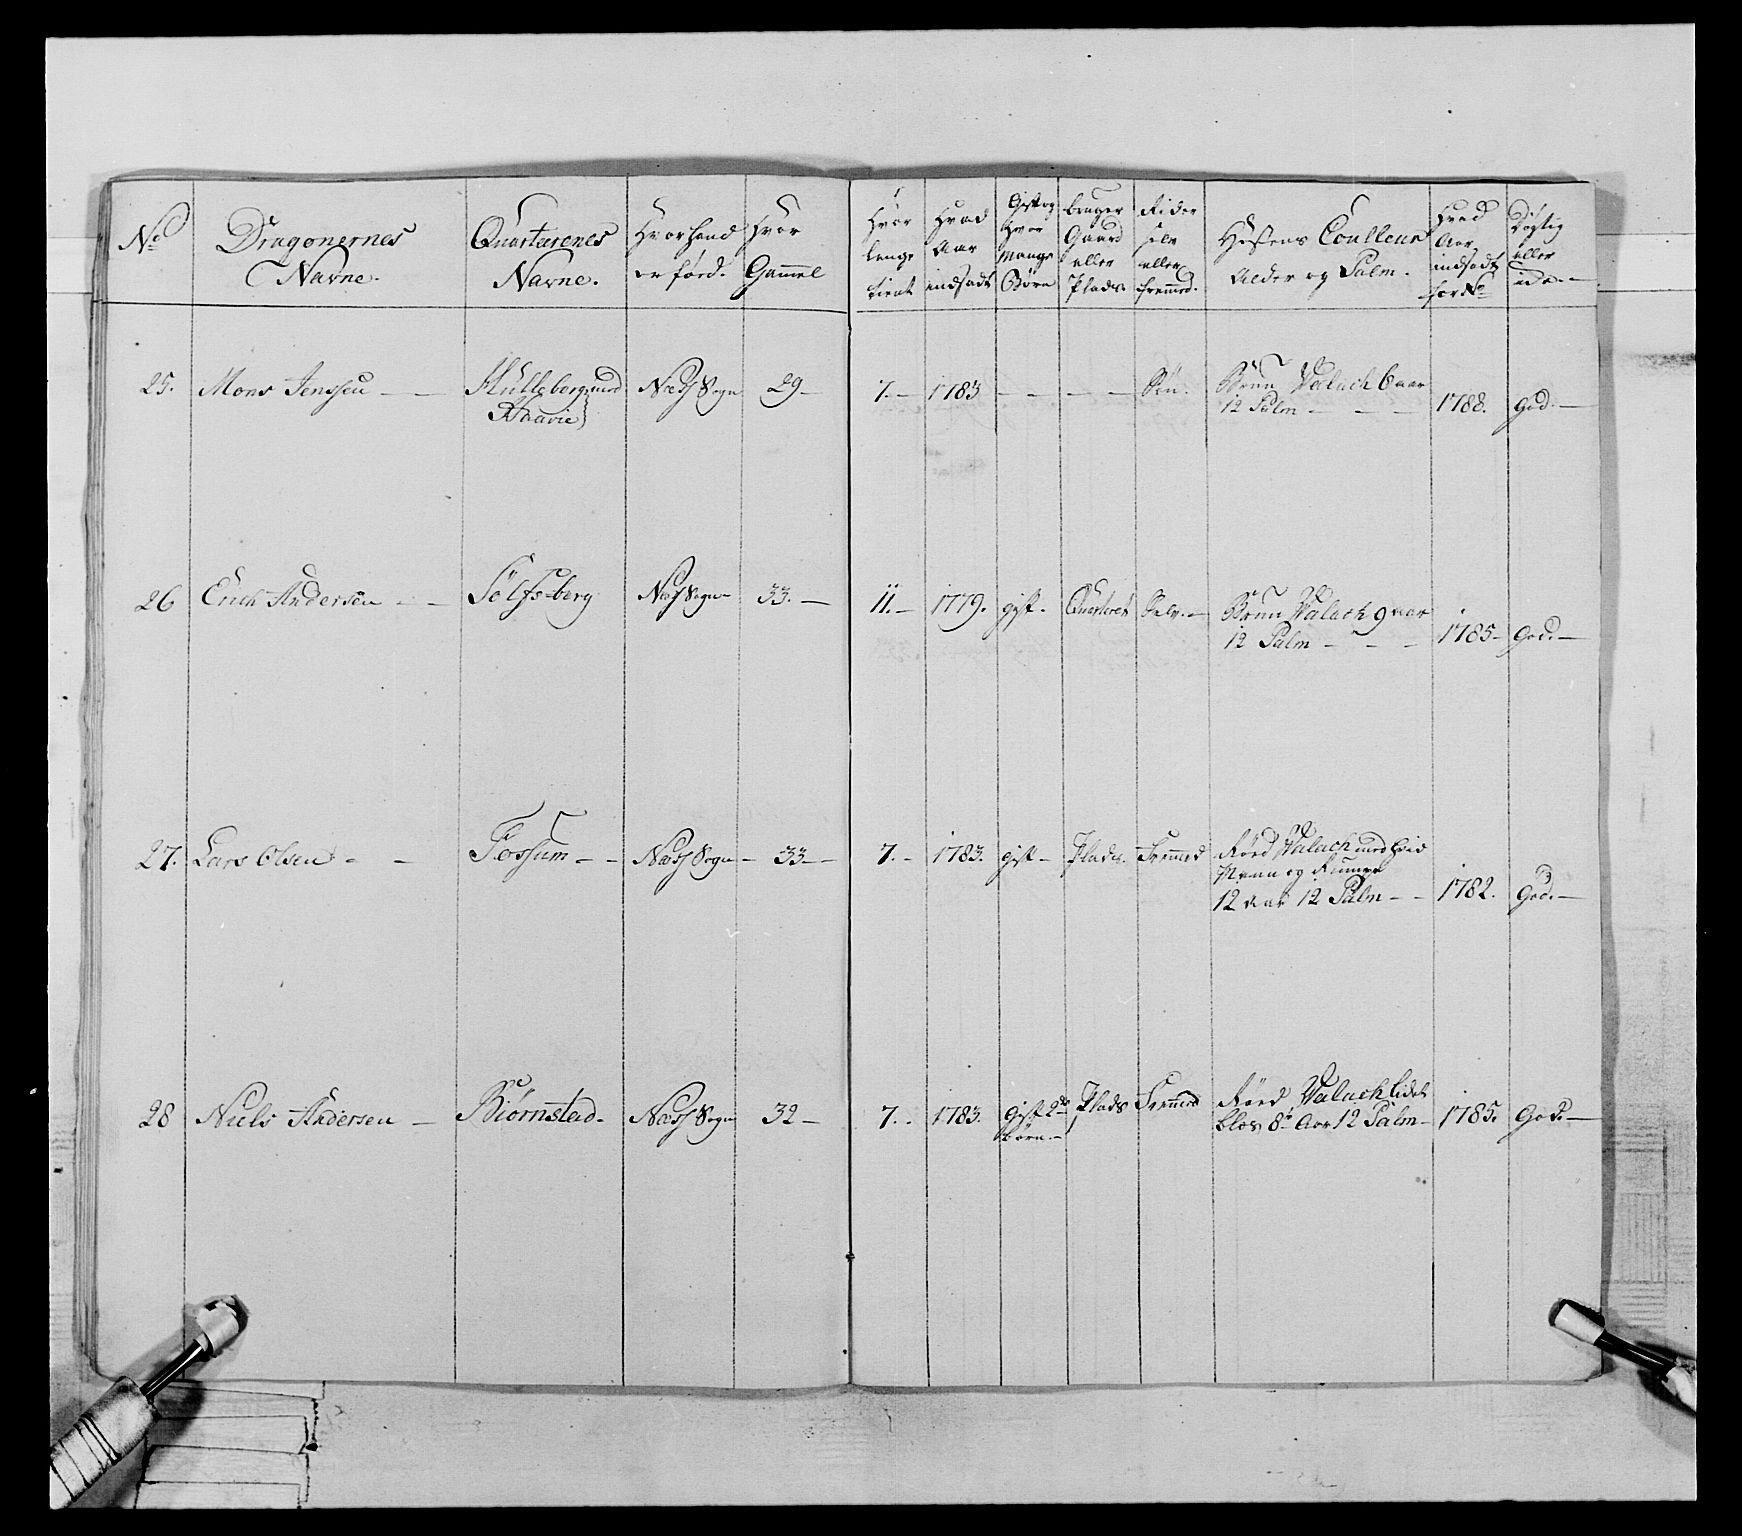 No
Dragonernes
Navne.
Quarterenes
Navne.
Hvor hand
er född.
Hvor
Gammel
Hvor
lenge
tient
Hvad
Aar
indsadt
Gift og
Hvor
Mange
Børn
bruger
Gaard
eller
Plads
Rider
selv
eller
fremmed.
Hestens Coulleur
Alder og Palm.
Hvad
Aar
indsadt
for No
Dygtig
eller
25. Mons Jenssen — — Næss Sogn 29 — 7. — 1783 — — — — Brun Valach 6 aar
12 Palm — — — 1788. God. —
26 Erich Andersen — — Sölfsberg Næss Sogn — 33. — 11. — 1779. gift. Quarteret Selv. — Brun Valach 9 aar
12 Palm — — — 1785 — God. —
27. Lars Olsen — — Fossum — — Næss Sogn — 33 — 7. — 1783. gift — Plads. Fremmed Röed Valach med hvid
Maan og Rumpe
12 aar 12 Palm — — 1782. God. —
28 Niels Andersen — Biörnstad. Næss Sogn 32 — 7. — 1783. Gift 2de Plads Fremmed Röed Valach lidet
börn — blos 8te Aar 12 Palm — 1785. God. —